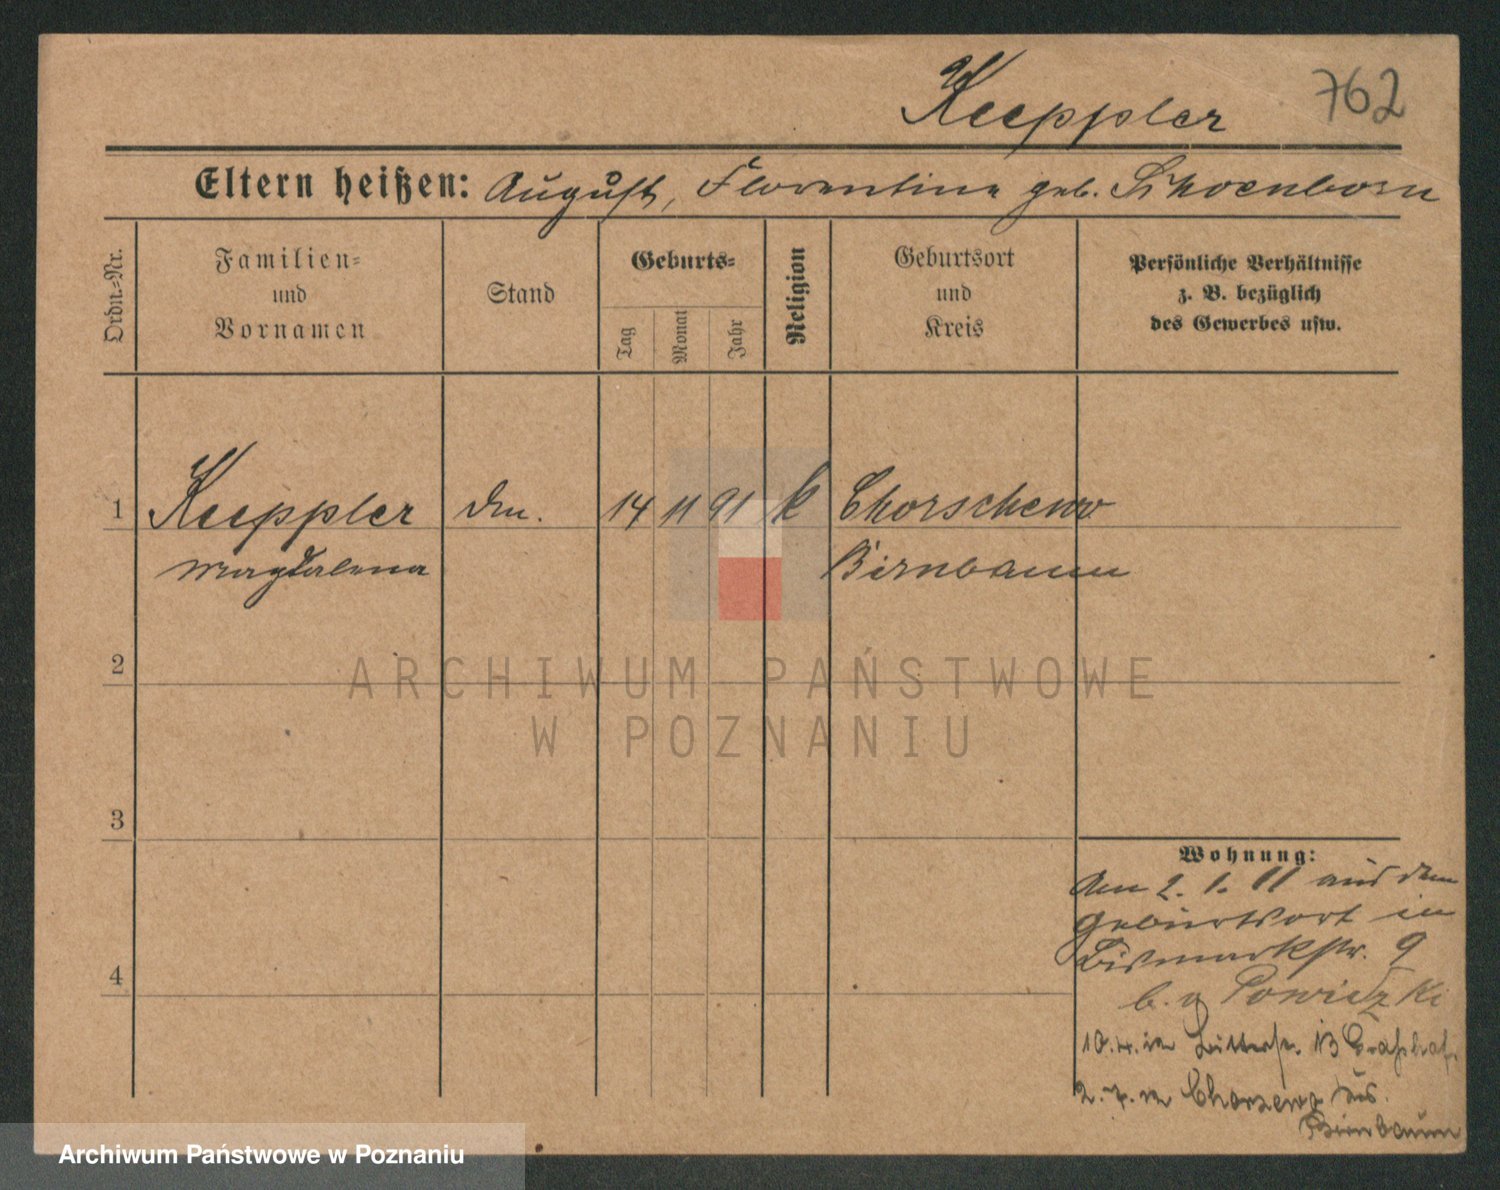 Keeppler 762
Eltern heißen: August, Florentine geb. Schoenborn
Ordn.-Nr.
Familien-
und
Vornamen
Stand
Geburts-
Tag
Monat
Jahr
Religion
Geburtsort
und
Kreis
Persönliche Verhältnisse
z. B. bezüglich
des Gewerbes usw.
1 Keeppler 14 11 91 k Chorschewo
Magdalena Birnbaum
2
3
4
Wohnung:
Am 2. 1. 11 aus dem
Geburtsort in
Bismarkstr. 9
b. Powidzki
10.4. in Ritterstr. 13
2.7. n Chorzewo
Birnbaum
ARCHIWUM PAŃSTWOWE
W POZNANIU
Archiwum Państwowe w Poznaniu